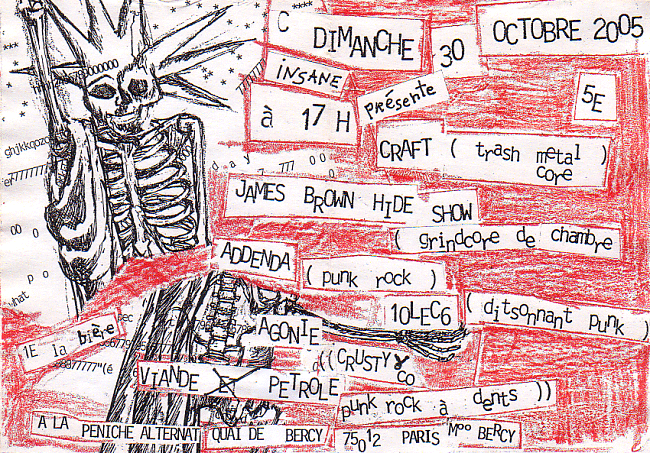 C DIMANCHE 30 OCTOBRE 2005
INSANE
à 17 H présente 5E
CRAFT ( trash metal )
core
JAMES BROWN HIDE SHOW
( grindcore de chambre
ADDENDA ( punk rock )
10LEC6 ( ditsonnant punk )
AGONIE
((CRUSTY & CO
1E la bière
VIANDE ET PETROLE
punk rock à dents ))
A LA PENICHE ALTERNAT QUAI DE BERCY 75012 PARIS M°° BERCY
ghjkkopzo
day
what